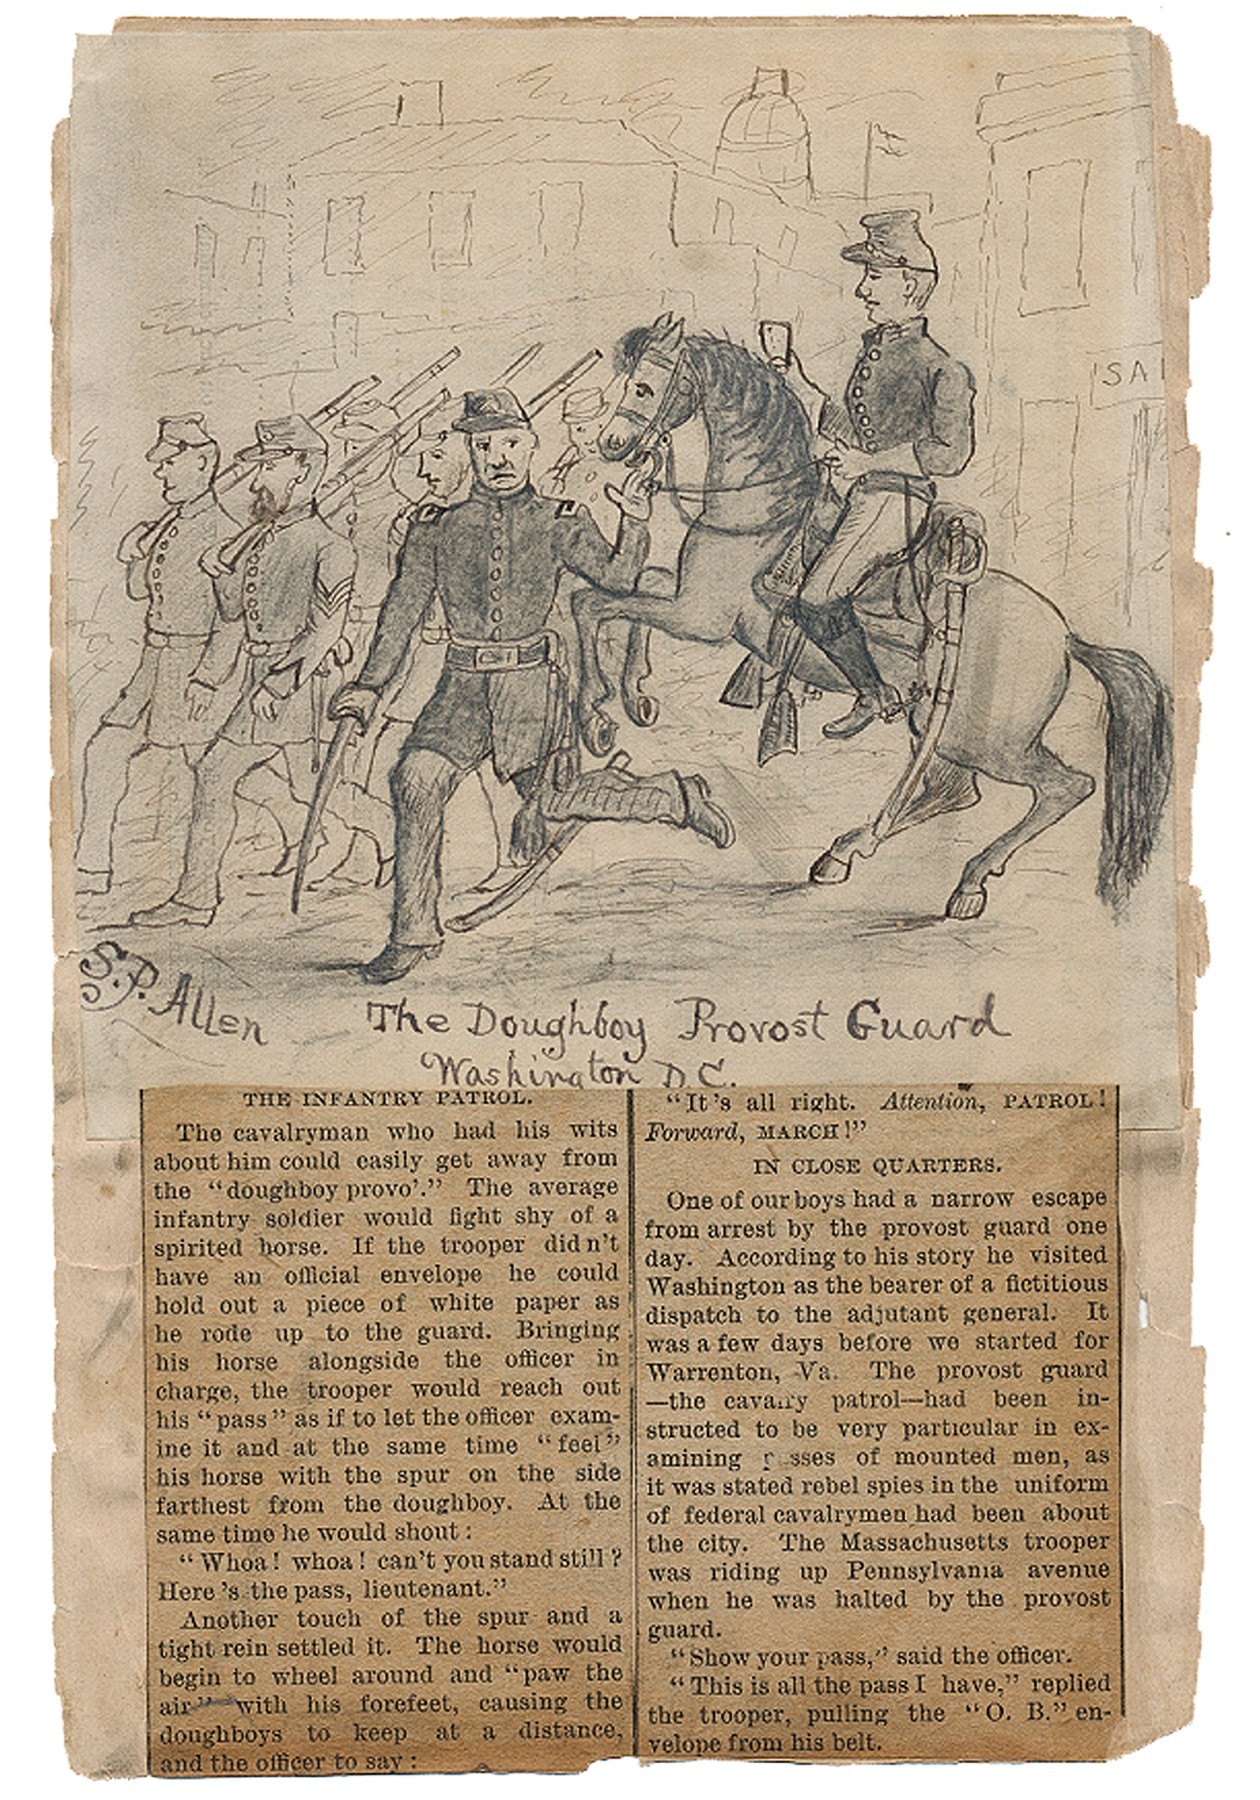 'SA
S.P. Allen
The Doughboy Provost Guard
Washington D.C.
THE INFANTRY PATROL.
The cavalryman who had his wits
about him could easily get away from
the “doughboy provo'.” The average
infantry soldier would fight shy of a
spirited horse. If the trooper didn't
have an official envelope he could
hold out a piece of white paper as
he rode up to the guard. Bringing
his horse alongside the officer in
charge, the trooper would reach out
his “pass” as if to let the officer exam-
ine it and at the same time “feel”
his horse with the spur on the side
farthest from the doughboy. At the
same time he would shout:
“Whoa! whoa! can't you stand still?
Here's the pass, lieutenant.”
Another touch of the spur and a
tight rein settled it. The horse would
begin to wheel around and “paw the
air” with his forefeet, causing the
doughboys to keep at a distance,
and the officer to say:
“It's all right. Attention, PATROL!
Forward, MARCH!”
IN CLOSE QUARTERS.
One of our boys had a narrow escape
from arrest by the provost guard one
day. According to his story he visited
Washington as the bearer of a fictitious
dispatch to the adjutant general. It
was a few days before we started for
Warrenton, Va. The provost guard
—the cavalry patrol—had been in-
structed to be very particular in ex-
amining passes of mounted men, as
it was stated rebel spies in the uniform
of federal cavalrymen had been about
the city. The Massachusetts trooper
was riding up Pennsylvania avenue
when he was halted by the provost
guard.
“Show your pass,” said the officer.
“This is all the pass I have,” replied
the trooper, pulling the “O. B.” en-
velope from his belt.